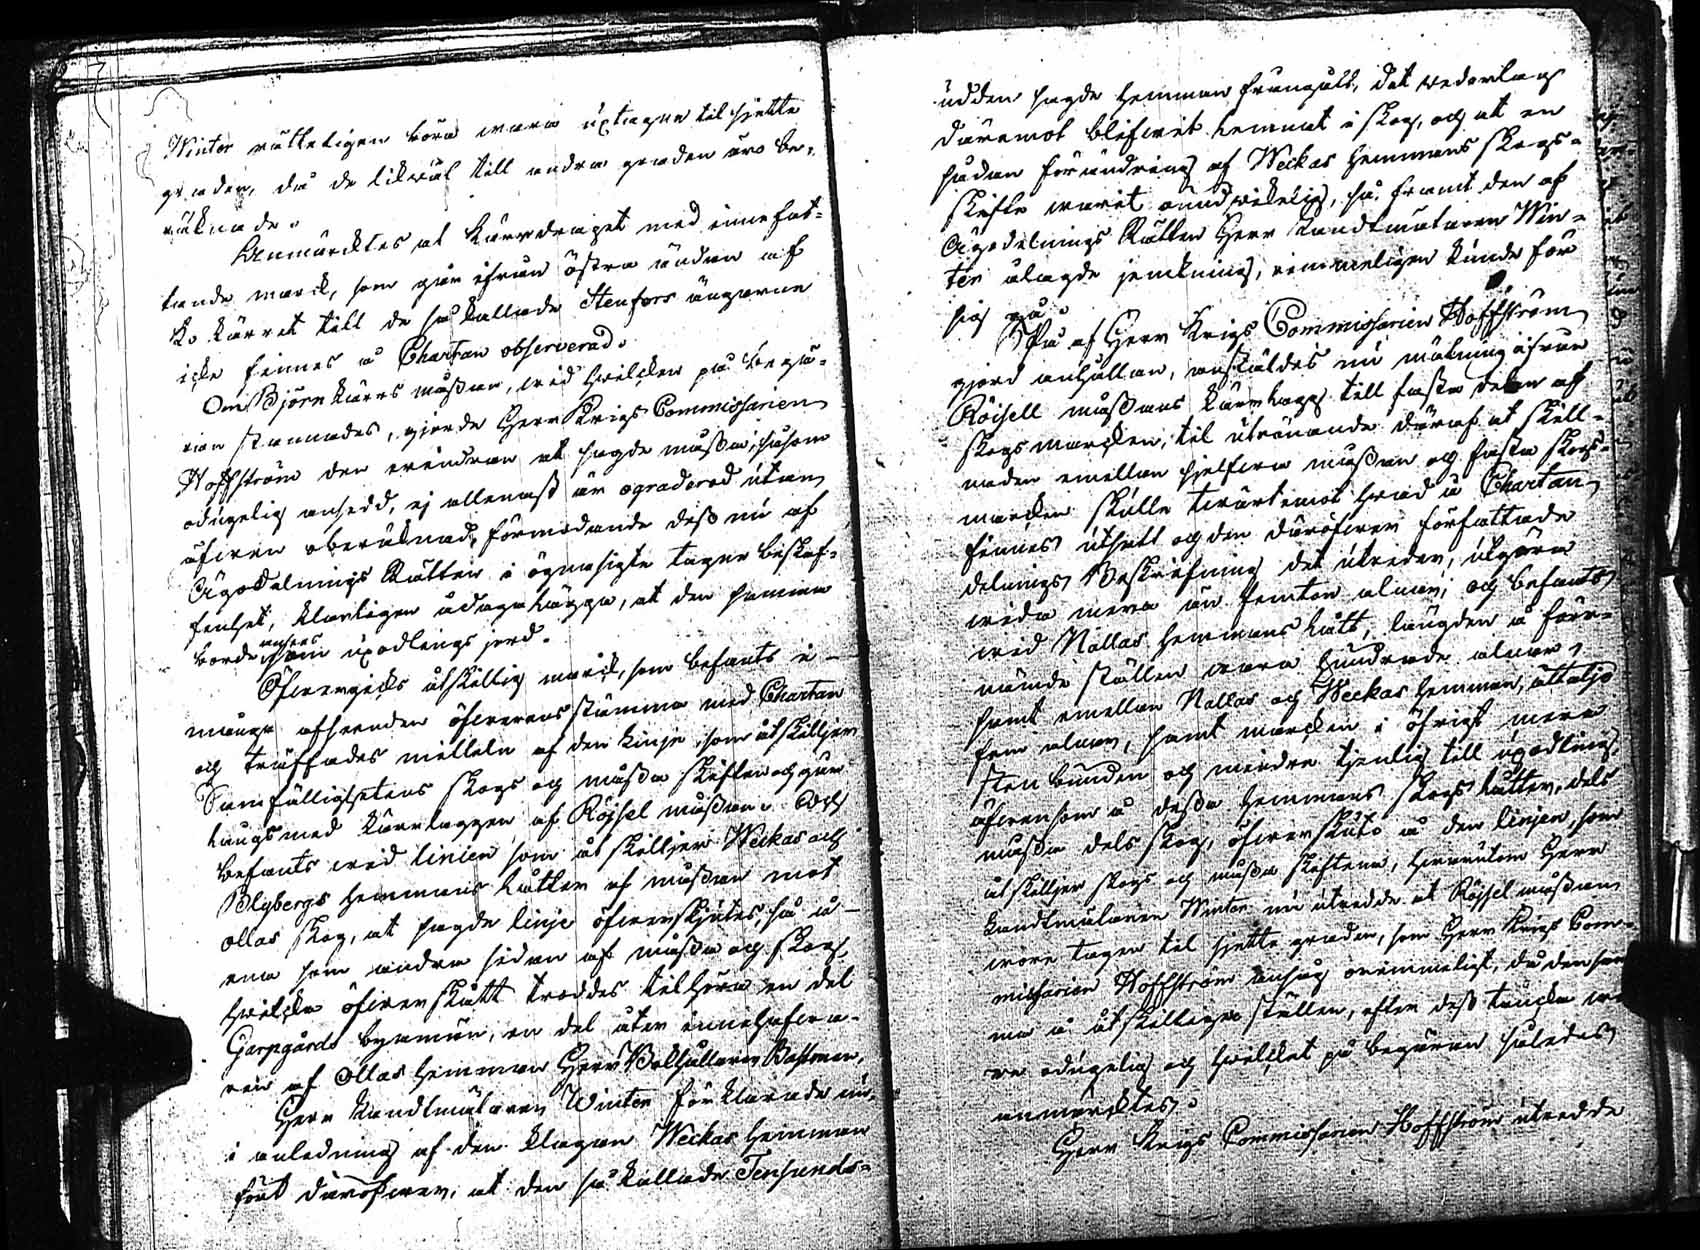 Winter rätteligen böra wara uptagne til sjette
graden, då de likwäl till andra graden äro be-
räknade.
Anmärktes at kärrdraget med innefat-
tande mark, som går ifrån östra ändan af
Ko kärret till de så kallade Stenfors ängarne
icke finnes å Chartan observerad.
Om Björnkärrs måssan, wid hwilken på begä-
ran stannades, gjorde Herr Krigs Commissarien
Hoffström den erindran at sagde måssa, såsom
oduglig ansedd, ej allenast är ograderad utan
äfwen oberäknad, förmodande dess nu af
Ägodelnings Rätten i ögnasigte tagne beskaf-
fenhet, klarligen ådagalägga, at den samma
borde anses som upodlings jord.
Öfwergicks åtskillig mark, som befants i
många afseenden öfwerensstämma med Chartan
och träffades medelst af den linje, som åtskilljer
Samfällighetens skogs och måssa skiften och går
längs med kärrlaggen af Röjsel måssan. Och
befants wid linien som åtskilljer Weckas och
Blybergs hemmans lotter af måssan mot
Ollas skog, at sagde linje öfwerskjutes, så å
ena som andra sidan af måssa och skog,
hwilka öfwerskått troddes tilhöra en del
Garpgårds byamän, en del åter innehafwa-
ren af Ollas hemman Herr Bokhållaren Bastman.
Herr Landtmätaren Winter förklarade nu,
i anledning af den klagan Weckas hemman
fört däröfwer, at den så kallade Tensunds-
udden sagde hemman frångått, det wederlag
däremot blifwit lemnat i skog, och at en
sådan förändring af Weckas hemmans skogs-
skifte warit oundwikelig, så framt den af
Ägodelnings Rätten Herr Landtmätaren Win-
ter ålagde jemkning, rimmeligen kunde för
sig gå.
På af Herr Krigs Commissarien Hoffström
gjord anhållan, anställdes nu mätning ifrån
Röjsell måssans kärrlagg till fasta delen af
skogsmarken, til utrönande däraf at skill-
naden emellan sjelfwa måssan och fasta skogs-
marken skulle twärtemot hwad å Chartan
finnes utsatt och den däröfwer författade
delnings Beskrifning det utreder, utgöra
wida mera än femton alnar, och befants
wid Nallas hemmans lått, längden å förr-
nämde ställen wara hundrade alnar,
samt emellan Nallas och Weckas hemman, åttatijo
fem alnar, samt marken i öfrigt mera
stenbunden och mindre tjenlig till upodling,
äfwensom å dessa hemmans skogs låtter, dels
måssa dels skog, öfwerskuto å den linjen, som
åtskilljer skogs och måssa skiftena, hwarutom Herr
Landtmätaren Winter nu utredde at Röjsel måssan
wore tagen til sjette graden, som Herr Krigs Com-
missarien Hoffström ansåg orimmeligt, då den sam
ma å åtskillige ställen, efter dess tancka wo
re oduglig och hwilcket på begäran således
anmärktes.
Herr Krigs Commissarien Hoffström utredde